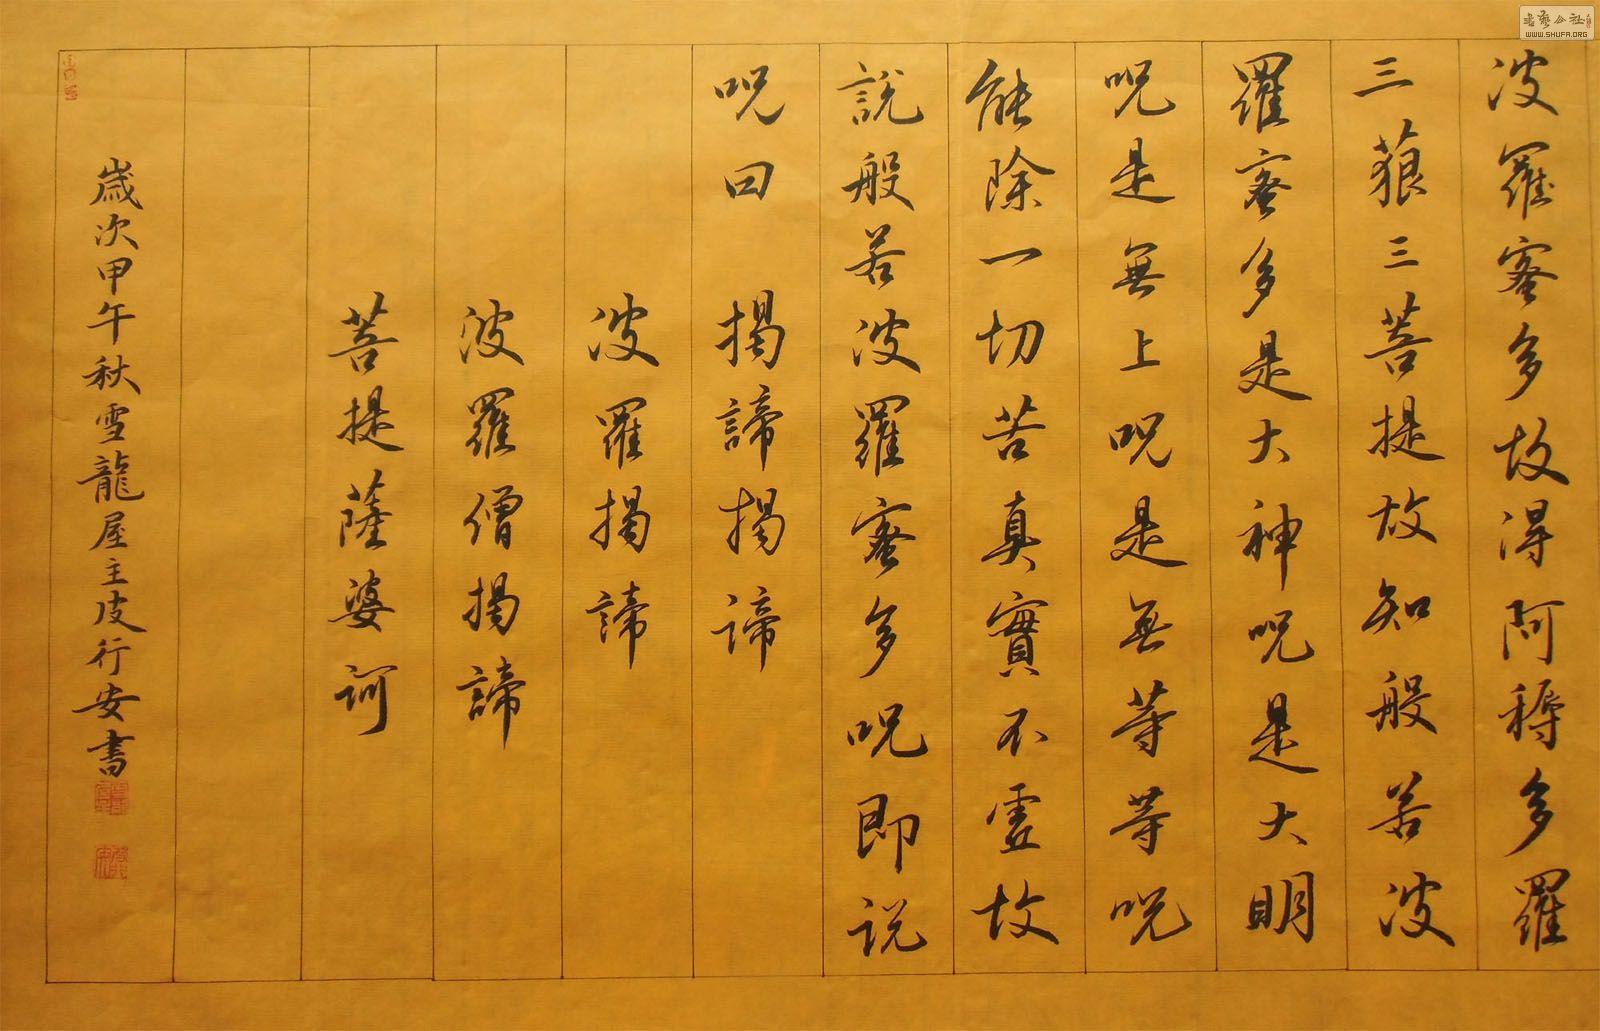 波羅蜜多故得阿耨多羅
三藐三菩提故知般若波
羅蜜多是大神呪是大明
呪是無上呪是無等等呪
能除一切苦真實不虛故
說般若波羅蜜多呪即說
呪曰 揭諦揭諦
波羅揭諦
波羅僧揭諦
菩提薩婆訶
歲次甲午秋雪龍屋主皮行安書
書藝公社
WWW.SHUFA.ORG